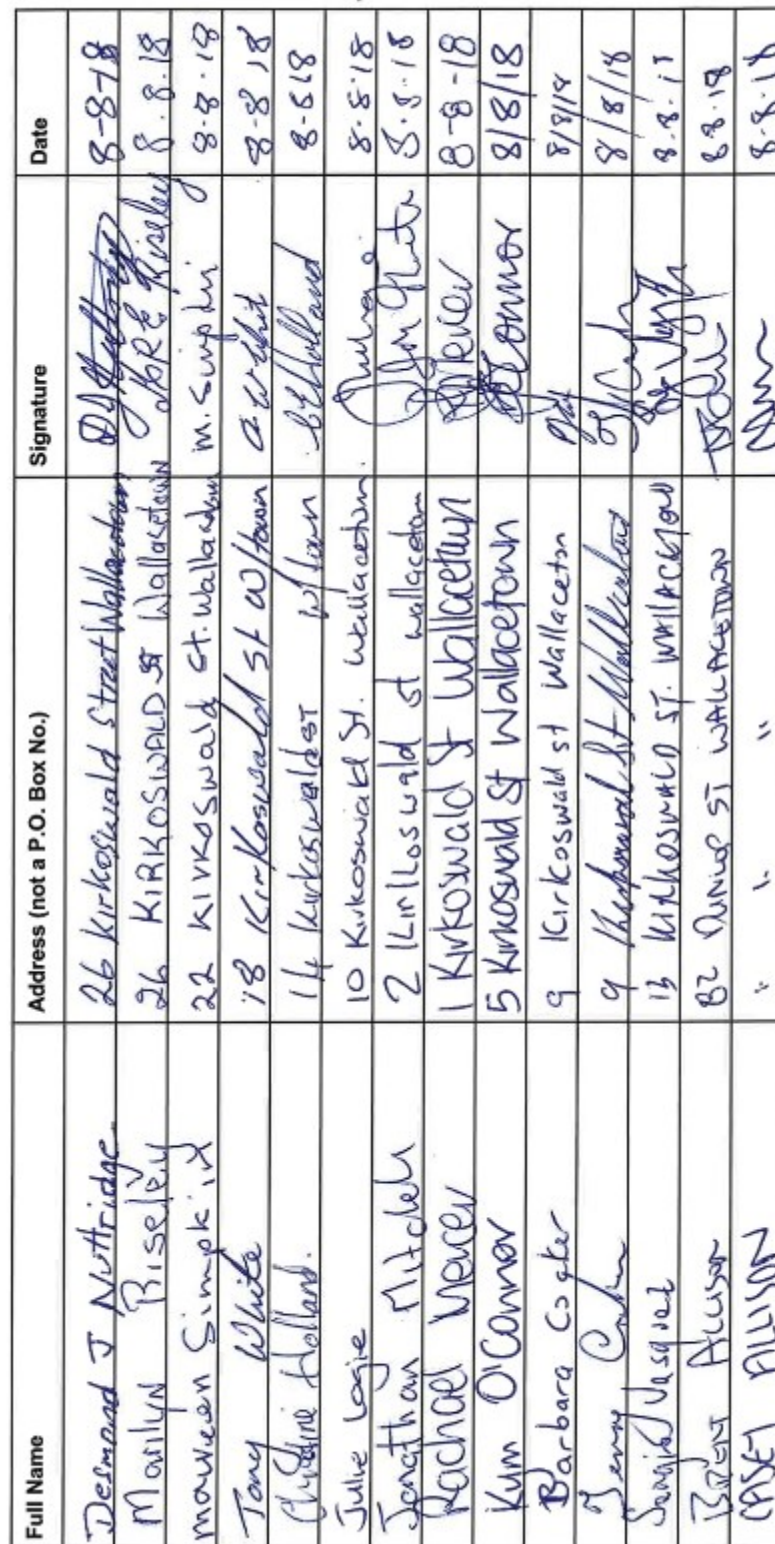 Full Name Address (not a P.O. Box No.) Signature Date
Desmond J Nuttridge 26 Kirkoswald Street Wallacetown 8-8-18
Marilyn Riseley 26 KIRKOSWALD ST Wallacetown Riseley 8.8.18
Maureen Simpkin 22 Kirkoswald St. Wallacetown m. Simpkin 8.8.18
Tony White 18 Kirkoswald St W/town a. White 8-8.18
Christine Holland. 14 Kirkoswald ST W/town Holland 8-8 18
Julie Logie 10 Kirkoswald St. Wallacetown. 8.8.18
Jonathan Mitchell 2 Kirkoswald st wallacetown 8.8.18
Rachael Mercer 1 Kirkoswald St Wallacetown Mercer 8-8-18
Kym O'Connor 5 Kirkoswald St Wallacetown O'Connor 8/8/18
Barbara 9 Kirkoswald st Wallaceton 8/8/18
9 Kirkoswald St Wallacetown 8/8/18
Vasquez 13 KIRKOSWALD ST. WALLACETOWN 8.8.18
BRENT ALLISON 82 DUNLOP ST WALLACETOWN 8 8.18
CASEY ALLISON " " " 8.8.18